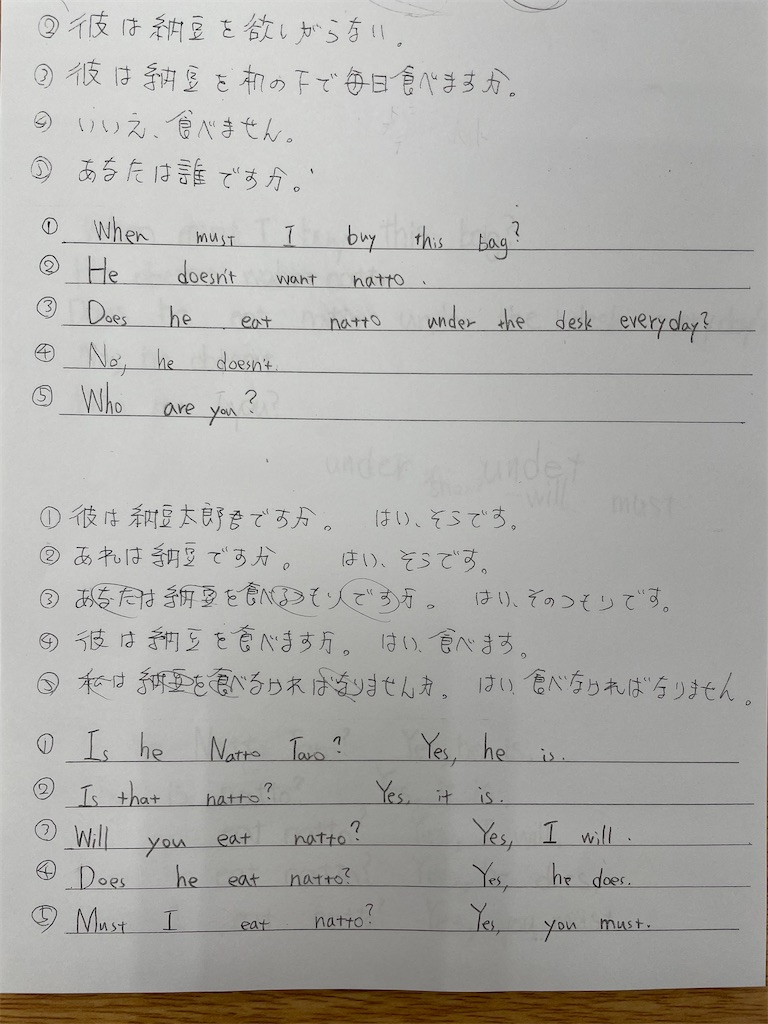 ② 彼は納豆を欲しがらない。
③ 彼は納豆を机の下で毎日食べますか。
④ いいえ、食べません。
⑤ あなたは誰ですか。
① When must I buy this bag?
② He doesn't want natto.
③ Does he eat natto under the desk everyday?
④ No, he doesn't.
⑤ Who are you?
① 彼は納豆太郎君ですか。 はい、そうです。
② あれは納豆ですか。 はい、そうです。
③ あなたは納豆を食べるつもりですか。 はい、そのつもりです。
④ 彼は納豆を食べますか。 はい、食べます。
⑤ 私は納豆を食べなければなりませんか。 はい、食べなければなりません。
① Is he Natto Taro? Yes, he is.
② Is that natto? Yes, it is.
③ Will you eat natto? Yes, I will.
④ Does he eat natto? Yes, he does.
⑤ Must I eat natto? Yes, you must.